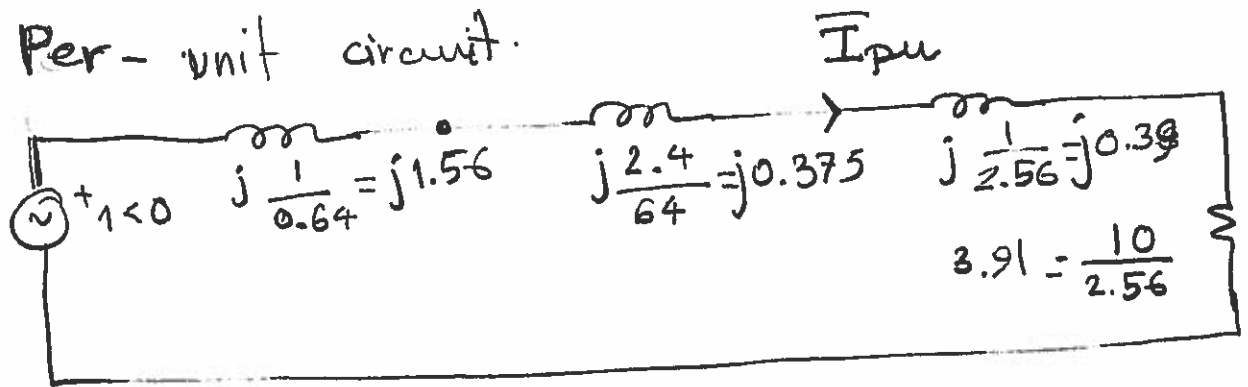 Per-unit circuit.
Īpu
+ 1<0
j 1/0.64 = j1.56
j 2.4/64 = j0.375
j 1/2.56 = j0.39
3.91 = 10/2.56